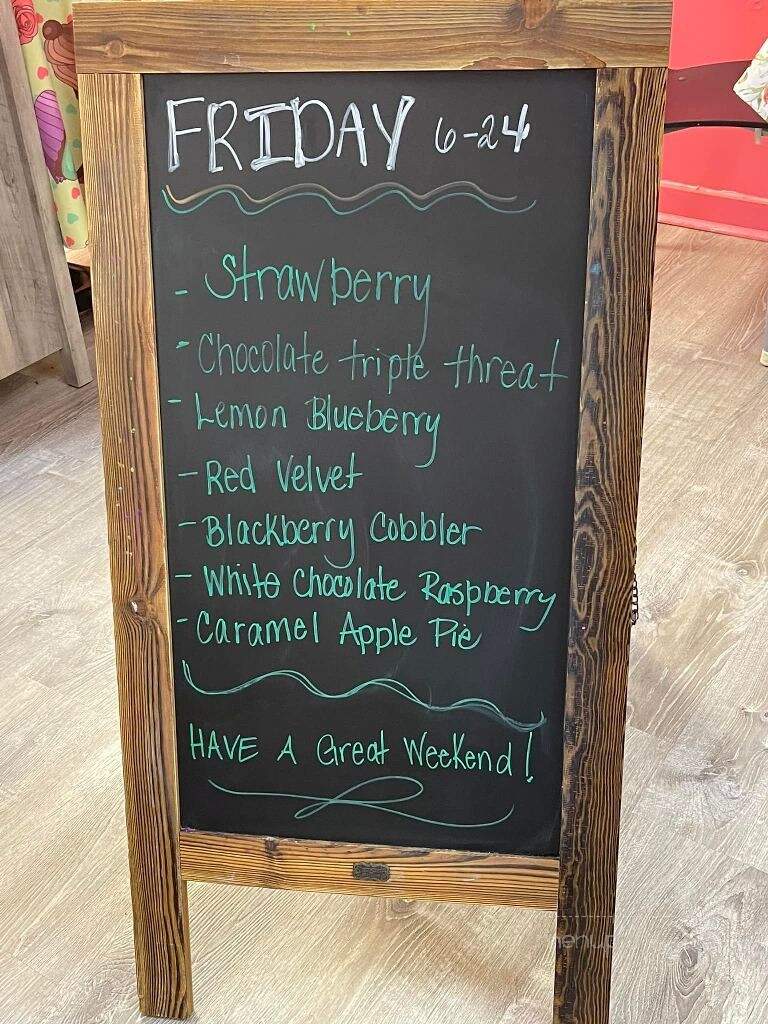 FRIDAY 6-24
- Strawberry
- Chocolate triple threat
- Lemon Blueberry
- Red Velvet
- Blackberry Cobbler
- White Chocolate Raspberry
- Caramel Apple Pie
HAVE A Great Weekend!